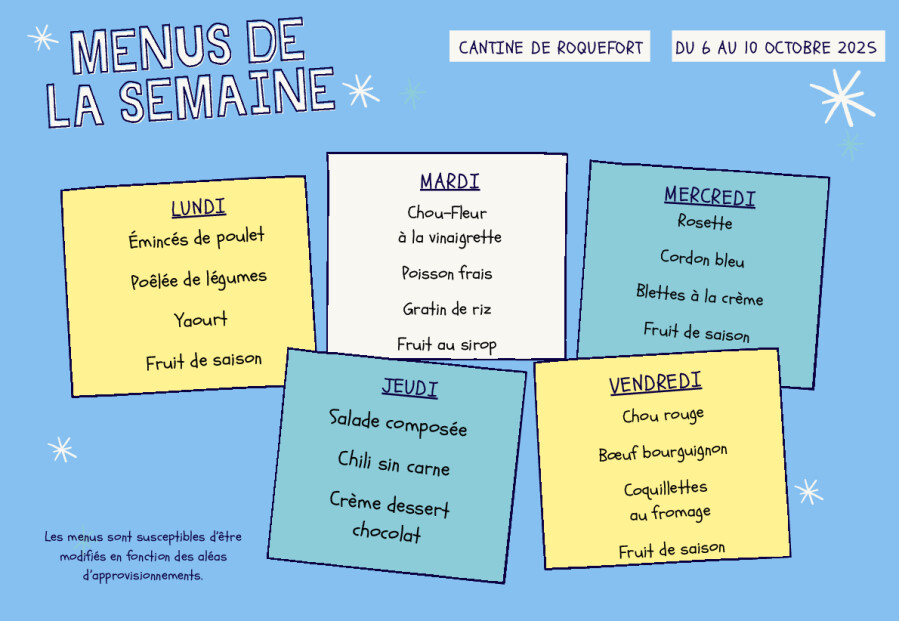 MENUS DE
LA SEMAINE
CANTINE DE ROQUEFORT
DU 6 AU 10 OCTOBRE 2025
LUNDI
Émincés de poulet
Poêlée de légumes
Yaourt
Fruit de saison
MARDI
Chou-Fleur
à la vinaigrette
Poisson frais
Gratin de riz
Fruit au sirop
MERCREDI
Rosette
Cordon bleu
Blettes à la crème
Fruit de saison
JEUDI
Salade composée
Chili sin carne
Crème dessert
chocolat
VENDREDI
Chou rouge
Bœuf bourguignon
Coquillettes
au fromage
Fruit de saison
Les menus sont susceptibles d'être
modifiés en fonction des aléas
d'approvisionnements.